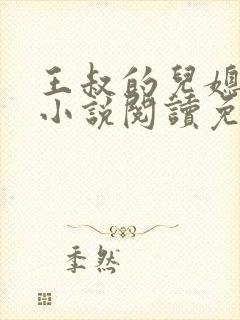 王叔的兒媳
小說閱讀免
季然